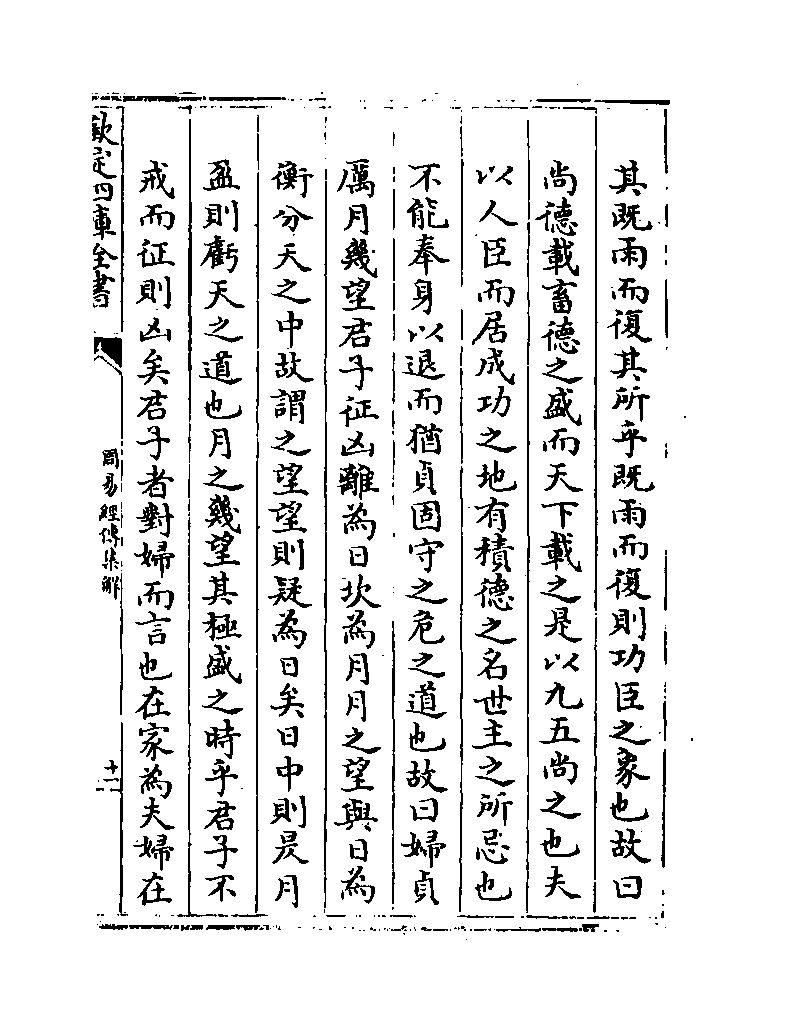 其既雨而復其所乎既雨而復則功臣之象也故曰
尚德載畜德之盛而天下載之是以九五尚之也夫
以人臣而居成功之地有積德之名世主之所忌也
不能奉身以退而猶貞固守之危之道也故曰婦貞
厲月幾望君子征凶離為日坎為月月之望與日為
衡分天之中故謂之望望則疑為日矣日中則昃月
盈則虧天之道也月之幾望其極盛之時乎君子不
戒而征則凶矣君子者對婦而言也在家為夫婦在
欽定四庫全書
周易經傳集解
十二